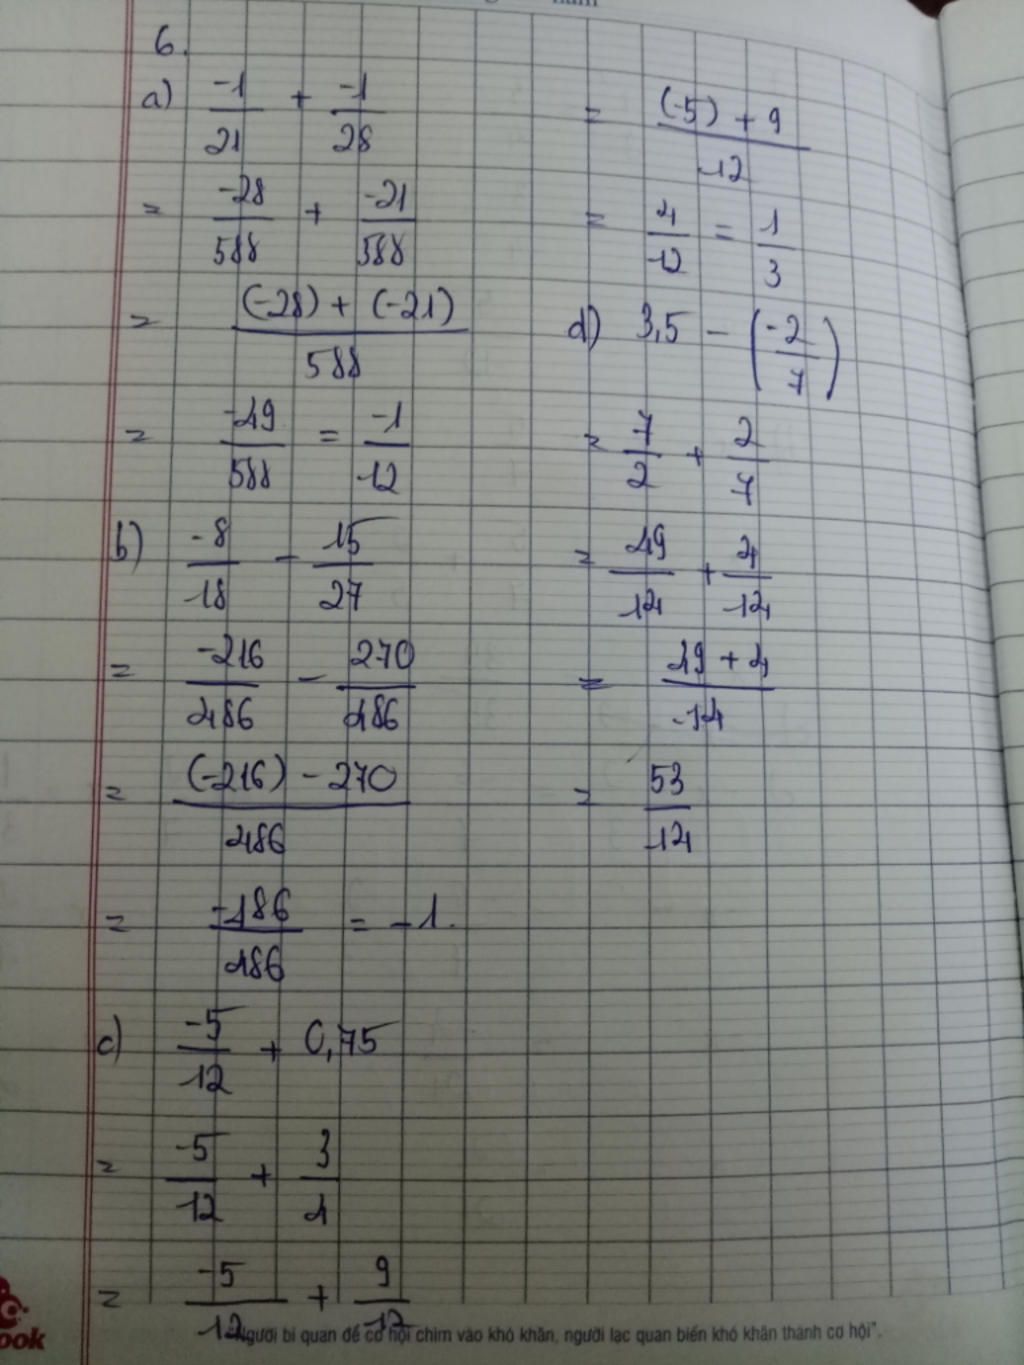 6.
a) -1/21 + -1/28
= -28/588 + -21/588
= (-28) + (-21)/588
= -49/588 = -1/12
b) -8/18 - 15/27
= -216/486 - 270/486
= (-216) - 270/486
= -486/486 = -1.
c) -5/12 + 0,75
= -5/12 + 3/4
= -5/12 + 9/12
= (-5) + 9/12
= 4/12 = 1/3
d) 3,5 - (-2/7)
= 7/2 + 2/7
= 49/14 + 4/14
= 49 + 4/14
= 53/14
"Người bi quan để cơ hội chìm vào khó khăn, người lạc quan biến khó khăn thành cơ hội".
ook